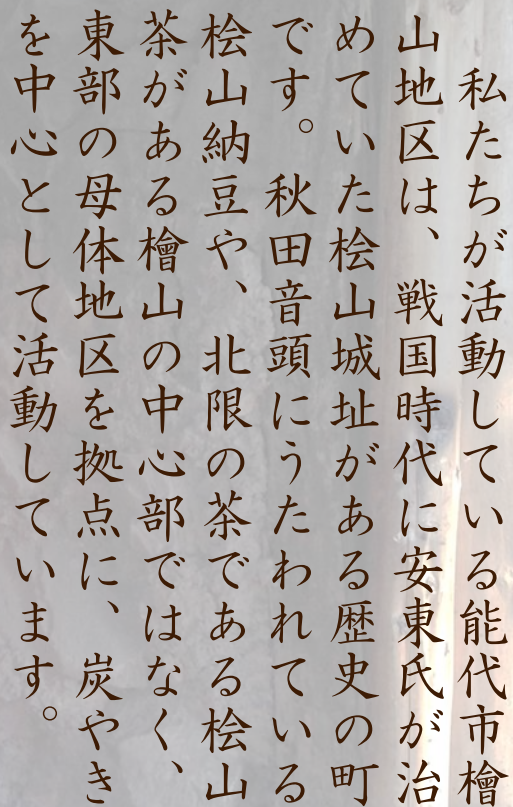 私たちが活動している能代市檜
山地区は、戦国時代に安東氏が治
めていた桧山城址がある歴史の町
です。秋田音頭にうたわれている
桧山納豆や、北限の茶である桧山
茶がある檜山の中心部ではなく、
東部の母体地区を拠点に、炭やき
を中心として活動しています。